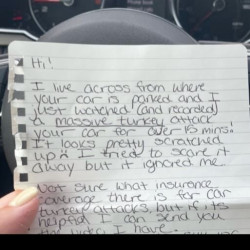 Hi!
I live across from where
your car is parked and I
just watched (and recorded)
a massive turkey attack
your car for over 15 mins!
It looks pretty scratched
up. I tried to scare it
away but it ignored me.
Not sure what insurance
coverage there is for car
turkey attacks, but if its
helpful I can send you
the video I have.